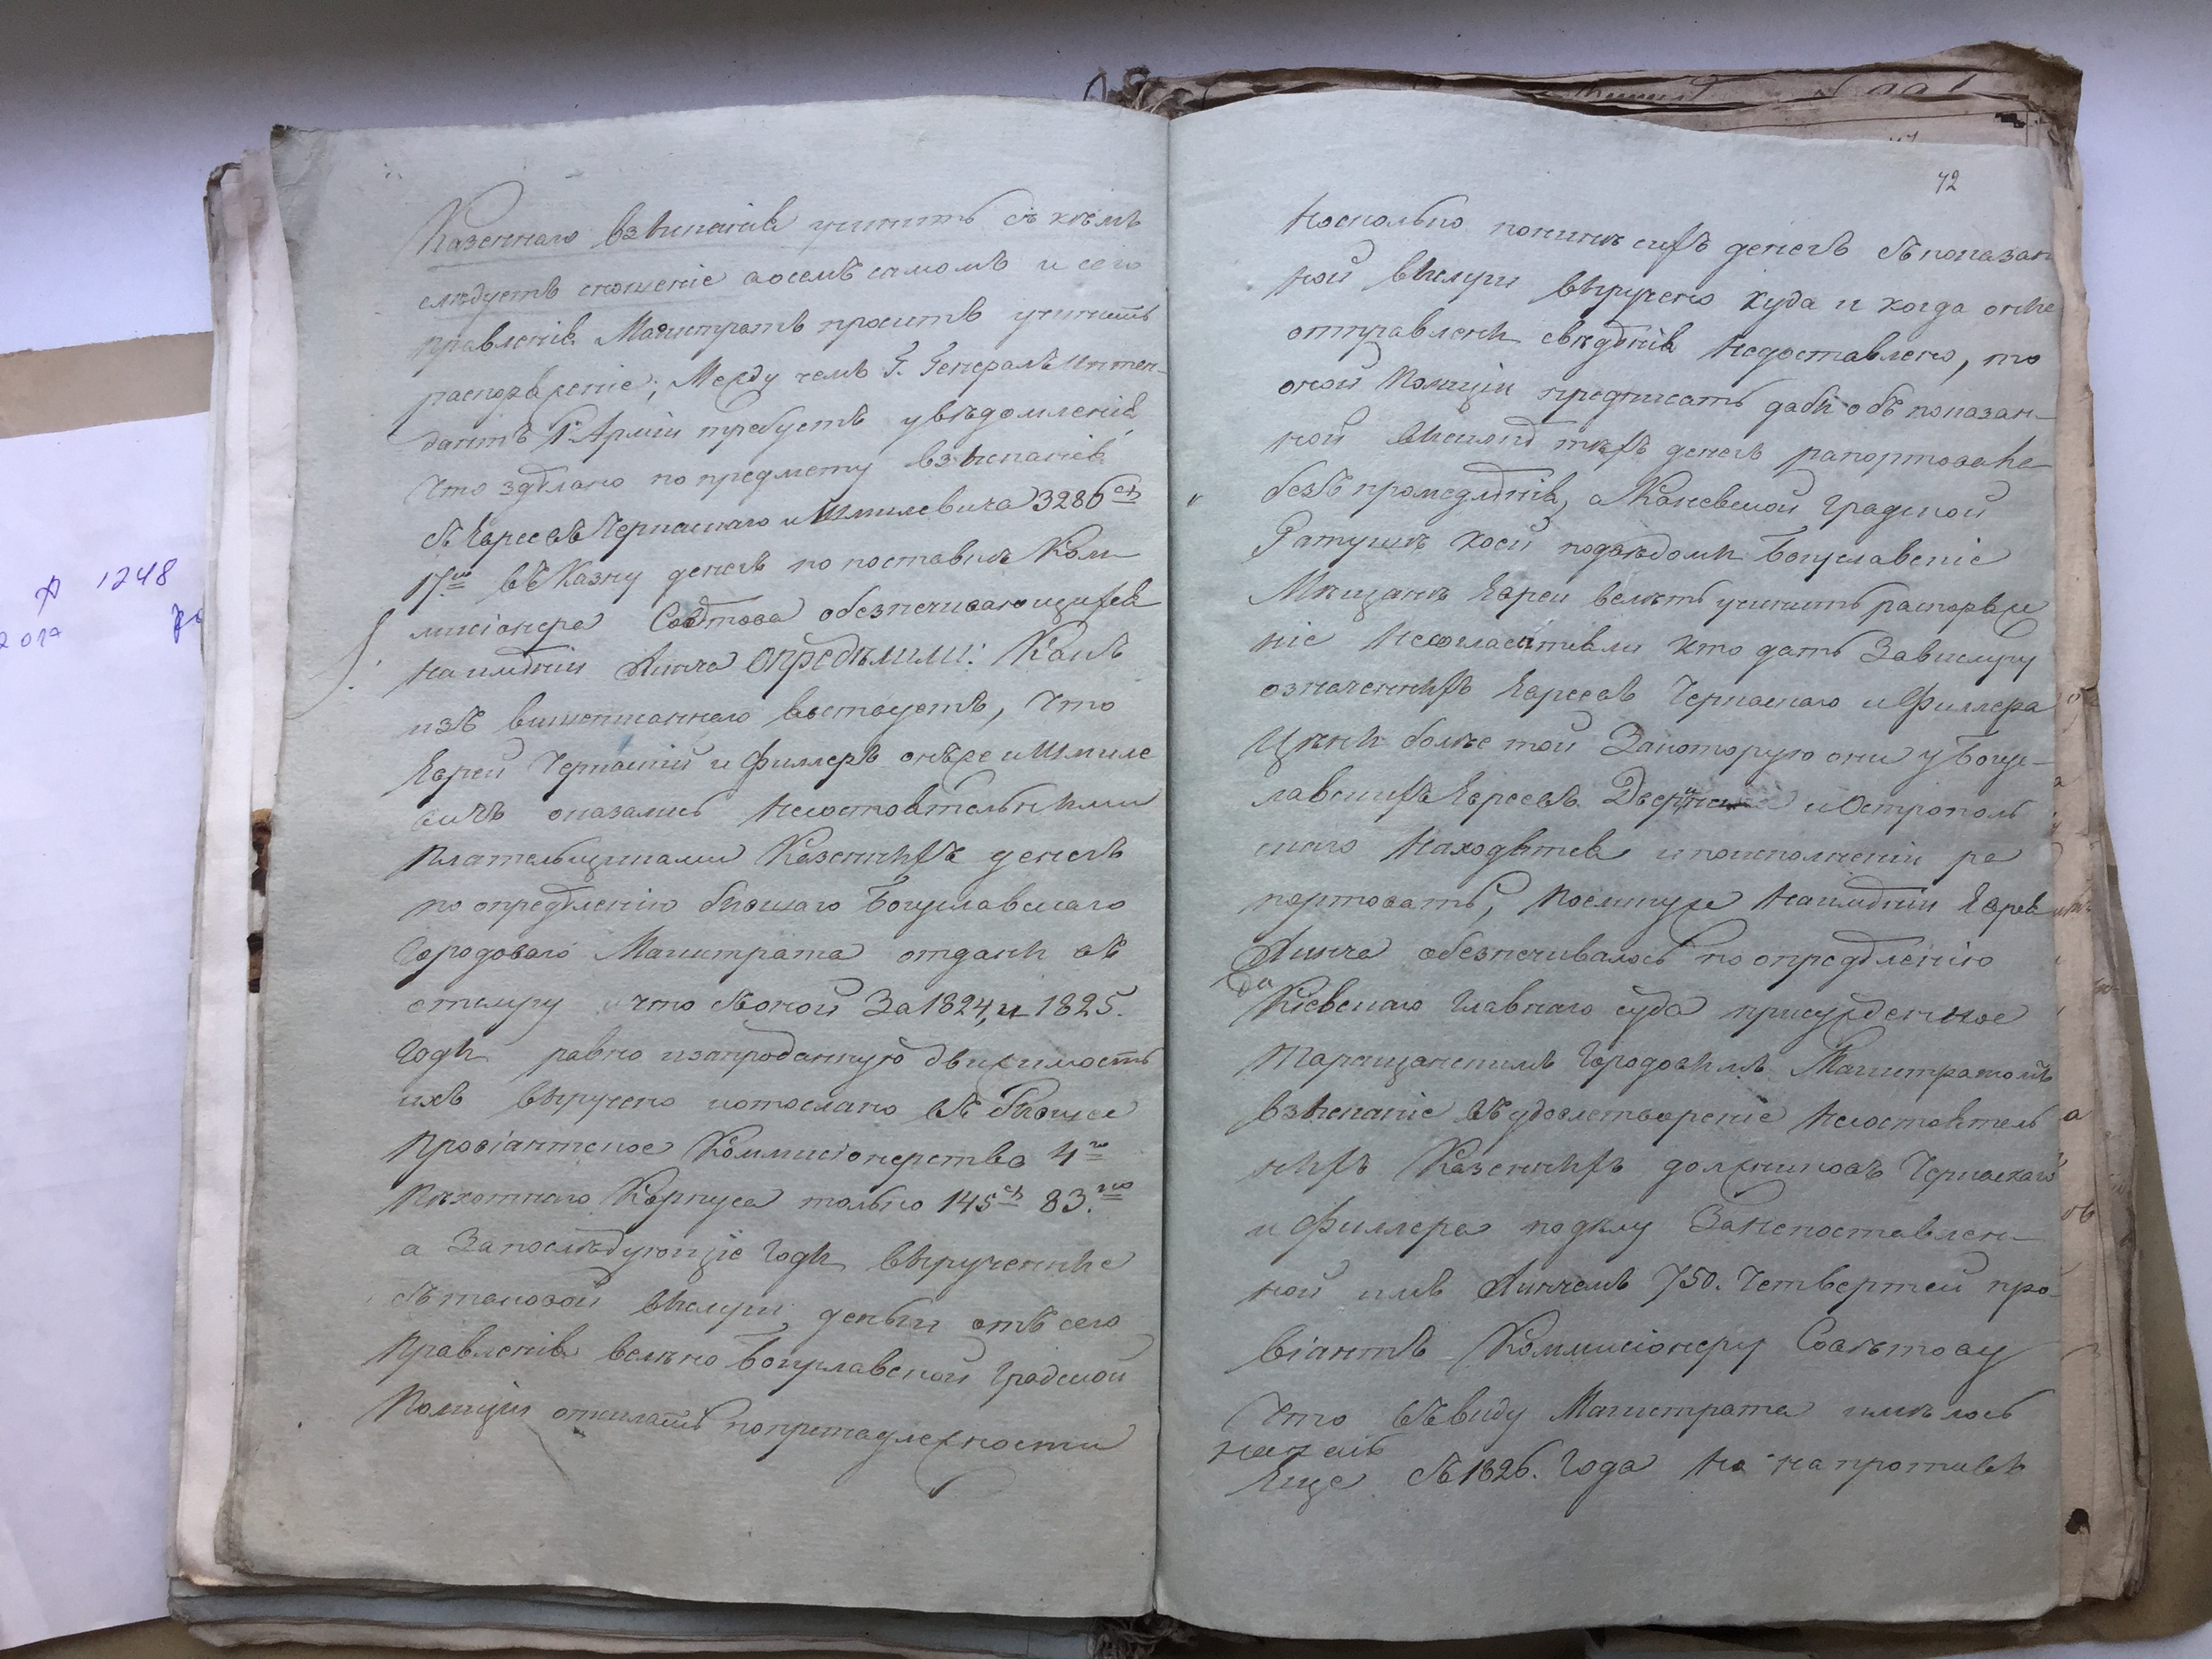 Казеннаго взысканія учинить съ кѣмъ
слѣдуетъ сношеніе аосемъ самомъ и сего
правленія Магистратъ проситъ учинить
распоряженіе; Между чемъ Г. Генералъ Интен-
дантъ 1й Арміи требуетъ увѣдомленія,
Что здѣлано по предмету взысканія
съ Евреевъ Черпаскаго и Шмилевича 3286
17 въ Казну денегъ по поставкѣ Ком-
мисіонера Совѣтова обезпечивающихся
на имѣніи Линча Опредѣлили: Какъ
изъ вышеписаннаго востаустъ, Что
Евреи Черпаскій и Филлеръ онъже и Шмиле
вичъ оказались несостоятельными
Плательщиками Казенныхъ денегъ
по опредѣленію бывшаго Богуславскаго
Городоваго Магистрата отданы въ
отклиру что съ оной За 1824, и 1825.
Годы равно изапроданную движимость
ихъ выручено иотослано въ бывшее
Провіантское Коммисіонерство 4го
Пѣхотнаго Корпуса только 145 83.
а Запослѣдующіе Годы вырученные
съ таковой выслуги деньги отъ сего
Правленія велѣно Богуславской Градской
Полиціи отсылать попринадлежности
42
носколько понынѣ сихъ денегъ съ показан
ной выслуги выручено куда и когда оные
отправлены свѣдѣнія недоставлено, то
оной Полиціи предписать дабы объ показан-
ной высылкѣ тѣхъ денегъ рапортовала
безъ промедлѣнія, а Каневской Градской
Ратушѣ коей подвѣдомы Богуславскіе
Мѣщанѣ Евреи велѣть учинить распоряже
ніе несогласятсяли кто дать Завислугу
означенныхъ Евреевъ Черпаскаго и Филлера
Цѣны болѣе той Закоторую они у Богу-
славскихъ Евреевъ и Острополь
скаго находятся ипоисполненіи ра
портовать, Поелику же наимѣніи Еврея
Линча обезпечивалось по опредѣленію
да
Кіевскаго Главнаго суда присужденное
Таращанскимъ Городовымъ Магистратомъ
взысканіе въ удовлетвореніе несостоятель
ныхъ Казенныхъ должниковъ Черпаскаго
и Филлера подѣлу Занепоставлен-
ной имъ Линчемъ 750. Четвертей про
віантъ Коммисіонеру Совѣтову
Что въ виду Магистрата имѣлось
Еще съ 1826. Года но напротивъ
А 1248